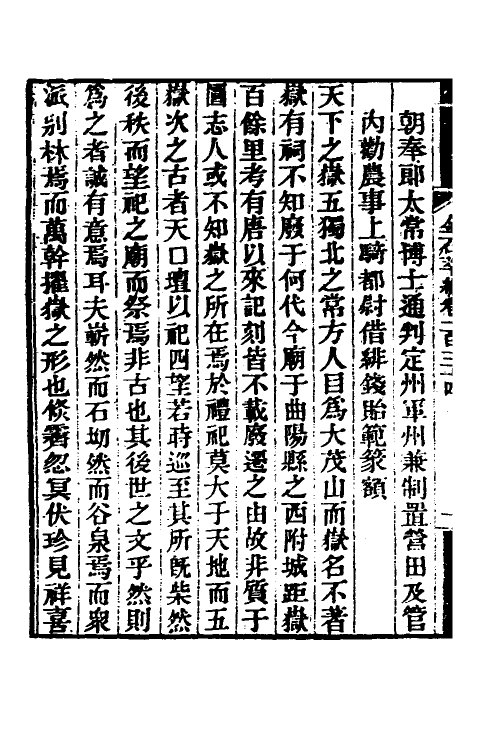 朝奉郎太常博士通判定州軍州兼制置營田及管
內勸農事上騎都尉借緋錢貽範篆額
天下之嶽五獨北之常方人目為大茂山而嶽名不著
嶽有祠不知廢于何代今廟于曲陽縣之西附城距嶽
百餘里考有唐以來記刻皆不載廢遷之由故非質于
圖志人或不知嶽之所在焉於禮祀莫大于天地而五
嶽次之古者天口壇以祀四望若時巡至其所旣柴然
後秩而望祀之廟而祭焉非古也其後世之文乎然則
為之者誠有意焉耳夫嶄然而石㘭然而谷泉焉而衆
派別林焉而萬幹擢嶽之形也倐霽忽冥伏珍見祥喜
金石萃編卷一百三十四